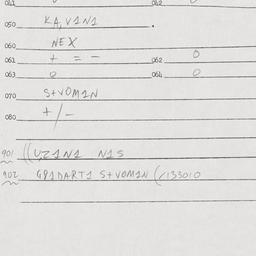 041 042
050 KA, V1N1 .
060 NEX
061 + = - 062 0
063 0 064 0
070 S+VOM1N
080 + / -
901 ((UZ1N1 N1S
902 GP1DART1 S+VOM1N (/133010